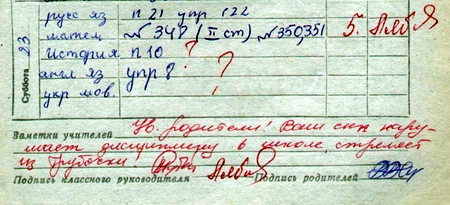 Суббота 23
русс яз п 21 упр 122
матем № 348 (II ст) № 350,351 5.
История п 10 ?
англ яз упр 8 ?
укр мов.
Заметки учителей Ув. родители! Ваш сын нару-
шает дисциплину в школе, стреляет
из трубочки
Подпись классного руководителя Подпись родителей